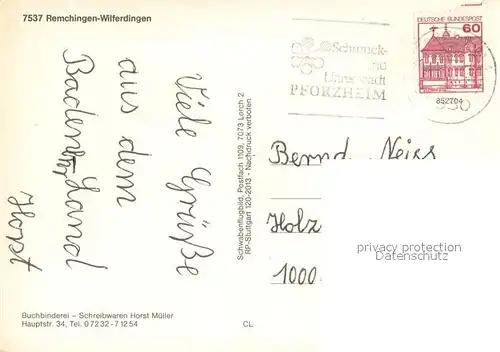 7537 Remchingen-Wilferdingen
Viele Grüße
aus dem
Badener Land
Horst
Buchbinderei – Schreibwaren Horst Müller
Hauptstr. 34, Tel. 0 72 32 - 7 12 54
Schwabenflugbild, Postfach 1109, 7073 Lorch 2
RP-Stuttgart 120-2013 - Nachdruck verboten
CL
Schmuck-
und
Uhrenstadt
PFORZHEIM
DEUTSCHE BUNDESPOST
60
852704
Bernd Neiss
Holz
1000
privacy protection
Datenschutz